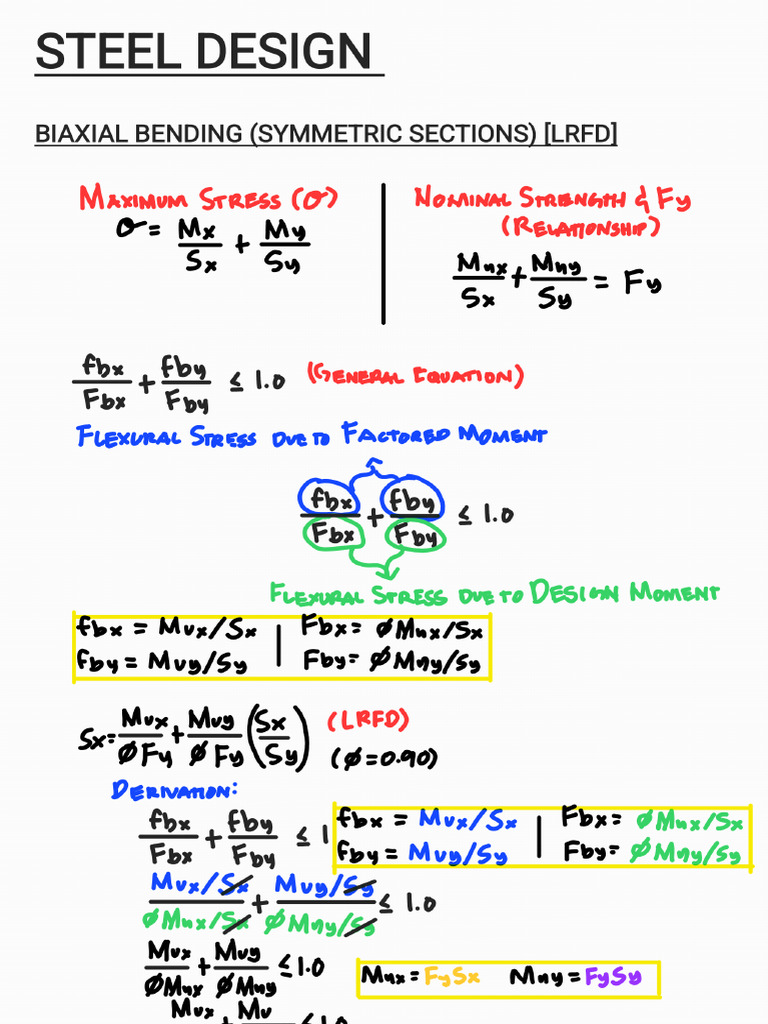 STEEL DESIGN
BIAXIAL BENDING (SYMMETRIC SECTIONS) [LRFD]
MAXIMUM STRESS (σ)
σ = Mx/Sx + My/Sy
NOMINAL STRENGTH & Fy
(RELATIONSHIP)
Mnx/Sx + Mny/Sy = Fy
fbx/Fbx + fby/Fby ≤ 1.0 (GENERAL EQUATION)
FLEXURAL STRESS DUE TO FACTORED MOMENT
fbx/Fbx + fby/Fby ≤ 1.0
FLEXURAL STRESS DUE TO DESIGN MOMENT
fbx = Mux/Sx | Fbx = ØMnx/Sx
fby = Muy/Sy | Fby = ØMny/Sy
Sx = Mux/ØFy + Muy/ØFy (Sx/Sy) (LRFD)
(Ø=0.90)
DERIVATION:
fbx/Fbx + fby/Fby ≤ 1
fbx = Mux/Sx | Fbx = ØMnx/Sx
fby = Muy/Sy | Fby = ØMny/Sy
Mux/Sx / ØMnx/Sx + Muy/Sy / ØMny/Sy ≤ 1.0
Mux/ØMnx + Muy/ØMny ≤ 1.0
Mnx = FySx Mny = FySy
Mux + Mu ≤ 1.0